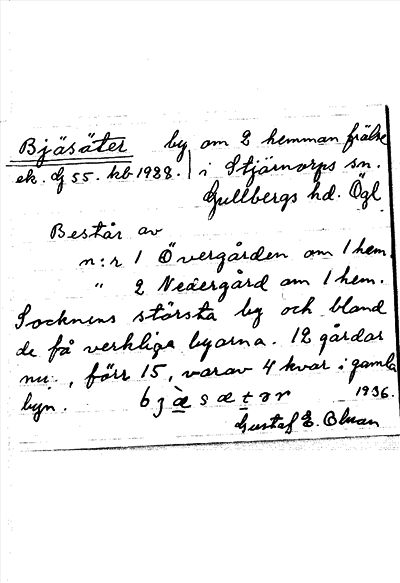 Bjäsäter by om 2 hemman frälse
ek. G 55. kb 1988. i Stjärnorps sn.
Gullbergs hd. Ögl
Består av
n:r 1 Övergården om 1 hem.
" 2 Nedergård om 1 hem.
Socknens största by och bland
de få verkliga byarna. 12 gårdar
nu, förr 15, varav 4 kvar i gamla
byn. bjæsætər 1936.
Gustaf E.